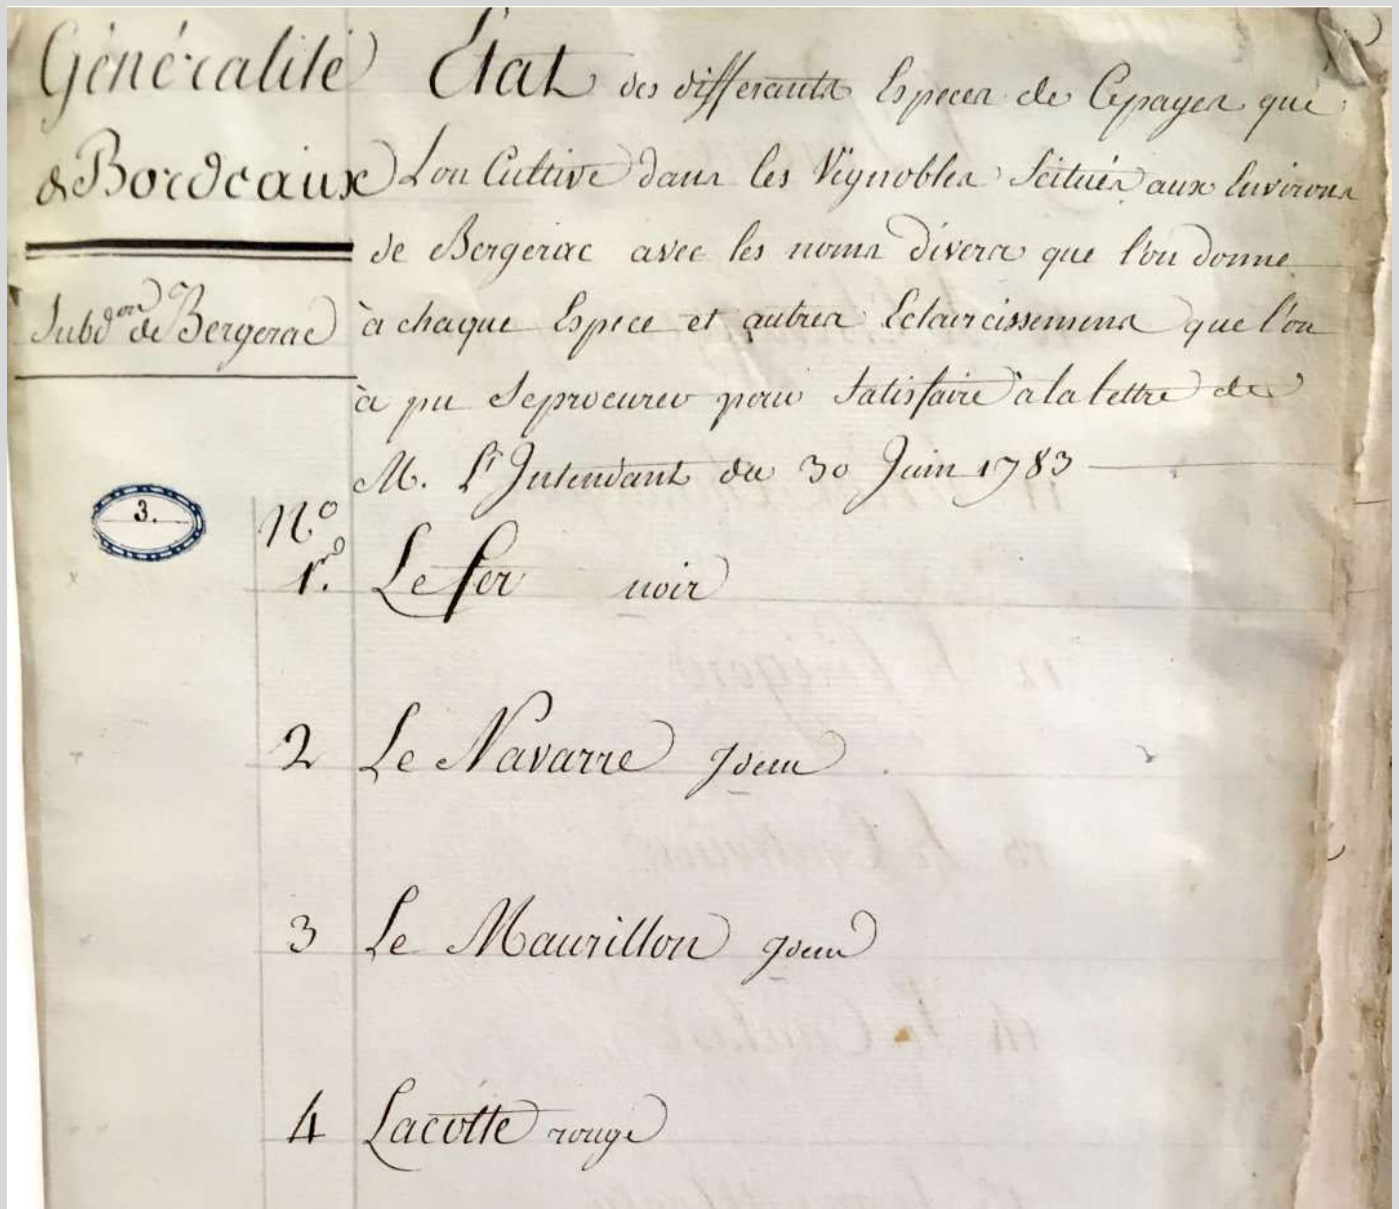 Généralité
de Bordeaux
Subd.on de Bergerac
3.
Etat des differants Especes de Cepages que
L'on Cultive dans les Vignobles Scitués aux Environs
de Bergerac avec les noms divers que l'on donne
à chaque Espece et autres Eclaircissemens que l'on
à pu se procurer pour Satisfaire a la lettre de
M. L'Intendant du 30 Juin 1783
No
1.er Le fer noir
2 Le Navarre Idem
3 Le Maurillon Idem
4 Lacotte rouge